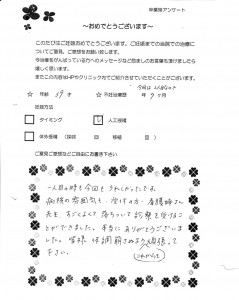 卒業時アンケート
～おめでとうございます～
このたびはご妊娠おめでとうございます。ご妊娠までの当院での治療に
ついてご意見、ご感想をお願い致します。
今治療をがんばっている方へのメッセージなど励ましのお言葉も頂けましたら
嬉しく思います。
またこの内容はHPやクリニック内でご紹介させていただくことがございます。
☆ 年齢 39才 ☆ 不妊治療歴 年9ヶ月
妊娠方法
タイミング 人工授精
体外授精（採卵 回 移植 回）
ご意見ご感想などご自由にお書き下さい
一人目の時も今回もうれしかったです。
病院の雰囲気も 受付の方・看護師さん
先生 すごくよくて 落ちついて診察を受けるこ
とができました。本当にありがとうございま
した。皆様 体調 崩さぬよう 頑張って
下さい。
これからも